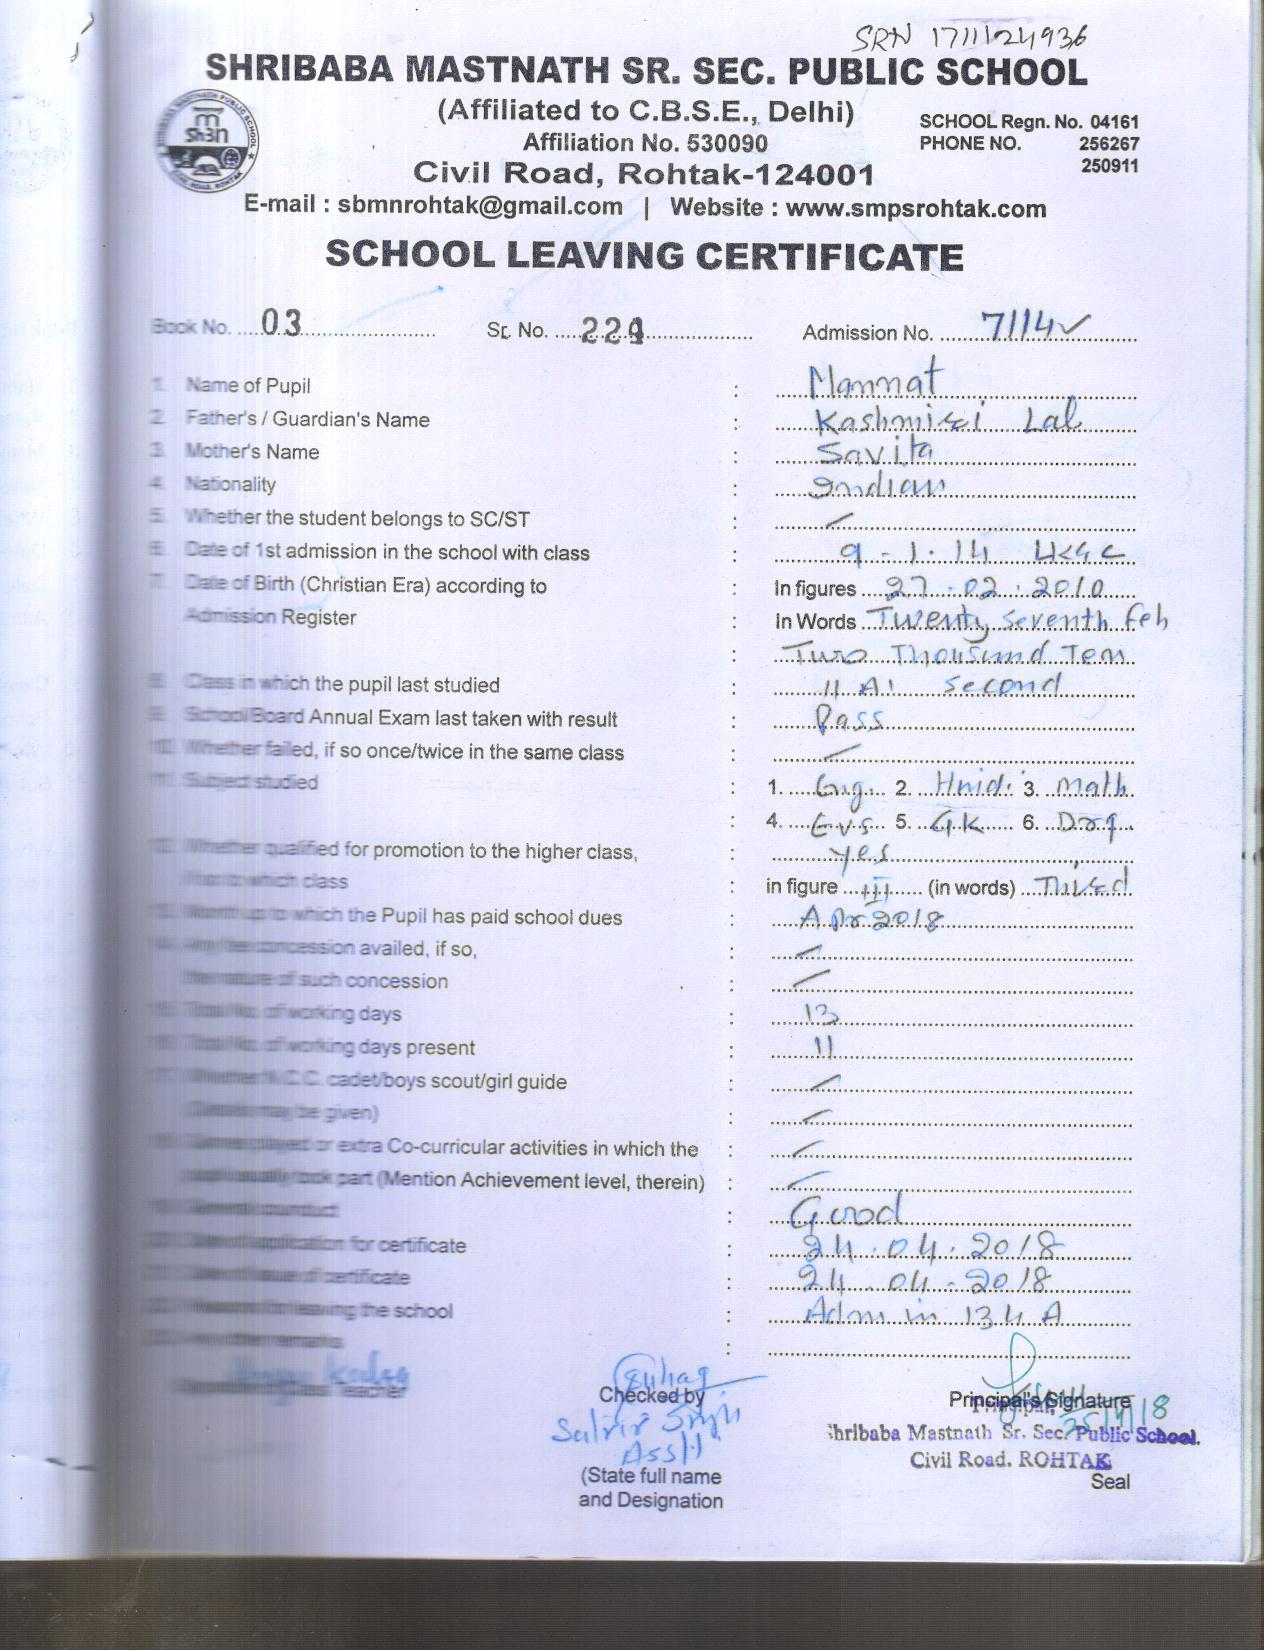 SRN 1711124936
SHRIBABA MASTNATH SR. SEC. PUBLIC SCHOOL
(Affiliated to C.B.S.E., Delhi)
Affiliation No. 530090
SCHOOL Regn. No. 04161
PHONE NO. 256267
250911
Civil Road, Rohtak-124001
E-mail : sbmnrohtak@gmail.com | Website : www.smpsrohtak.com
SCHOOL LEAVING CERTIFICATE
Book No. 03 Sr. No. 224 Admission No. 7114
1. Name of Pupil : Mannat
2. Father's / Guardian's Name : Kashmiri Lal
3. Mother's Name : Savita
4. Nationality : Indian
5. Whether the student belongs to SC/ST :
6. Date of 1st admission in the school with class : 9-1-14 UKG C
7. Date of Birth (Christian Era) according to : In figures 27.02.2010
Admission Register : In Words Twenty Seventh Feb
: Two Thousand Ten
8. Class in which the pupil last studied : II A1 Second
9. School/Board Annual Exam last taken with result : Pass
10. Whether failed, if so once/twice in the same class :
11. Subject studied : 1. Eng. 2. Hnidi 3. Math
: 4. Evs. 5. G.K. 6. Drg.
12. Whether qualified for promotion to the higher class, : yes
if so to which class : in figure III (in words) Third
13. Month up to which the Pupil has paid school dues : Apr 2018
14. Any fee concession availed, if so, :
the nature of such concession :
15. Total No. of working days : 13
16. Total No. of working days present : 11
17. Whether N.C.C. cadet/boys scout/girl guide :
(Details may be given) :
18. Games played or extra Co-curricular activities in which the :
pupil usually took part (Mention Achievement level, therein) :
19. General conduct : Good
20. Date of application for certificate : 24.04.2018
21. Date of issue of certificate : 24.04.2018
22. Reasons for leaving the school : Adm in 134 A
23. Any other remarks :
Class Teacher
Checked by
Principal's Signature
25/4/18
Principal,
Shribaba Mastnath Sr. Sec. Public School.
Civil Road. ROHTAK
(State full name
and Designation
Seal